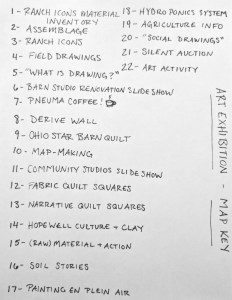 1 - RANCH ICONS MATERIAL
INVENTORY
2 - ASSEMBLAGE
3 - RANCH ICONS
4 - FIELD DRAWINGS
5 - "WHAT IS DRAWING?"
6 - BARN STUDIO RENOVATION SLIDESHOW
7 - PNEUMA COFFEE!
8 - DERIVE WALL
9 - OHIO STAR BARN QUILT
10 - MAP-MAKING
11 - COMMUNITY STUDIOS SLIDESHOW
12 - FABRIC QUILT SQUARES
13 - NARRATIVE QUILT SQUARES
14 - HOPEWELL CULTURE + CLAY
15 - (RAW) MATERIAL + ACTION
16 - SOIL STORIES
17 - PAINTING EN PLEIN AIR
18 - HYDROPONICS SYSTEM
19 - AGRICULTURE INFO
20 - "SOCIAL DRAWINGS"
21 - SILENT AUCTION
22 - ART ACTIVITY
ART EXHIBITION - MAP KEY